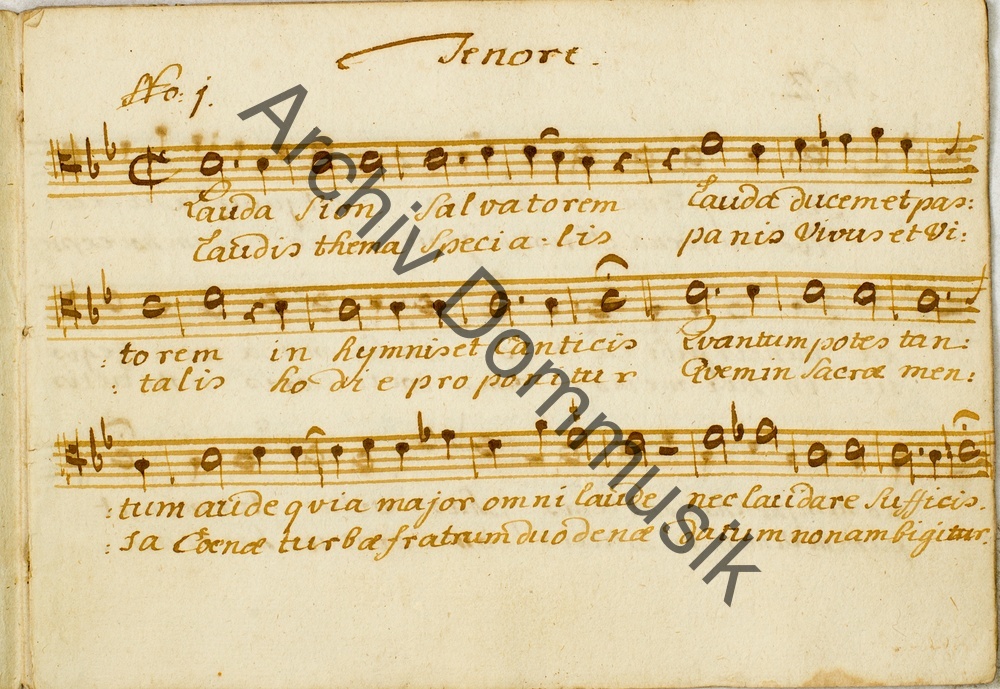 Tenore.
No: 1.
Lauda Sion Salvatorem Lauda ducem et pas:
Laudis thema Speci a: lis panis Vivus et Vi:
: torem in hymnis et Canticis Quantum potes tan:
: talis ho di e pro ponitur Quem in Sacræ men:
: tum aude quia major omni laude nec laudare Sufficis.
: sa Coenæ turbæ fratrum duodenæ datum non ambigitur.
Archiv Dommusik